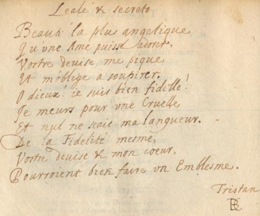 Leale & secreto
Beauté la plus angelique
Qu'vne Ame puisse
Vostre deuise me pique
Et m'oblige a soupirer.
O dieux! ie suis bien fidelle!
Je meurs pour vne Cruelle
Et ne scait ma langueur.
De la Fidelité mesme,
Vostre deuise & mon coeur.
Pourroient bien faire vn Emblesme.
Tristan